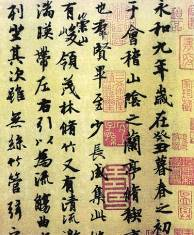 永和九年歲在癸丑暮春之初
于會稽山陰之蘭亭脩稧
也群賢畢至少長咸集此
有崇山峻領茂林脩竹又有清流
湍暎帶左右引以為流觴曲
列坐其次雖無絲竹管弦